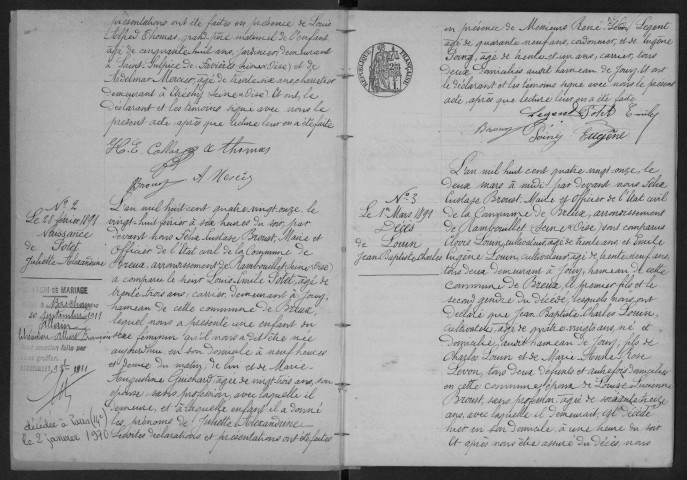 présentations ont été faites en présence de Louis
Alfred Thomas, grand-père maternel de l'enfant
âgé de cinquante huit ans, jardinier, demeurant
à Saint Sulpice de Favières (Seine & Oise) et de
Adelmar Mercier, âgé de trente six ans, charcutier
demeurant à (Seine & Oise) Et ont, le
Déclarant et les témoins signé avec nous le
présent acte après que lecture leur en a été faite
H. E. A Thomas
Broust A Mercier
N° 2
Le 28 février 1891
Naissance
de Potet
Juliette Alexandrine
L'an mil huit cent quatre vingt onze, le
vingt huit février à six heures du soir, par
devant nous Félix Eustase Broust, Maire et
Officier de l'Etat civil de la Commune de
Breux, arrondissement de Rambouillet (Seine & Oise)
a comparu le nommé Louis Emile Potet, âgé de
trente trois ans, carrier, demeurant à Jouy,
hameau de cette commune de Breux,
lequel nous a présenté une enfant du
sexe féminin qu'il nous a dit être née
aujourd'hui en son domicile à neuf heures
et demie du matin, de lui et de Marie
Augustine Guichard âgée de vingt trois ans, son
épouse, sans profession, avec laquelle il
demeure, et à laquelle enfant il a donné
les prénoms de "Juliette Alexandrine"
Lesdites déclarations et présentations ont été faites
MENTION DE MARIAGE
septembre 1911
1911
décédée à Paris (14e)
le 2 janvier 1970
en présence de Messieurs René Legent
âgé de quarante neuf ans, cordonnier, et de Eugène
Poiny, âgé de trente et un ans, carrier, tous
deux domiciliés audit hameau de Jouy. Et ont
le déclarant et les témoins signé avec nous le présent
acte, après que lecture leur en a été faite
RÉPUBLIQUE FRANÇAISE
Legent Potet Emile
Broust Poiny Eugène
N° 3
Le 1er Mars 1891
Décès
de Louin
Jean Baptiste Charles
L'an mil huit cent quatre vingt onze, le
deux mars à midi par devant nous Félix
Eustase Broust, Maire et Officier de l'Etat civil
de la Commune de Breux, arrondissement
de Rambouillet (Seine & Oise) sont comparus
Louin, cultivateur, âgé de trente ans et Emile
Eugène Louin, cultivateur, âgé de trente neuf ans,
tous deux demeurant à Jouy, hameau de cette
commune de Breux, le premier fils et le
second gendre du décédé, lesquels nous ont
déclaré que Jean Baptiste Charles Louin,
cultivateur, âgé de quatre vingts ans, né et
domicilié audit hameau de Jouy, fils de
Charles Louin et de Marie Rose
Levon, tous deux décédés et autrefois domiciliés
en cette commune, époux de Louise
Broust, sans profession, âgée de soixante seize
ans, avec laquelle il demeurait, est décédé
hier en son domicile à une heure du soir
Et après nous être assuré du décès, nous